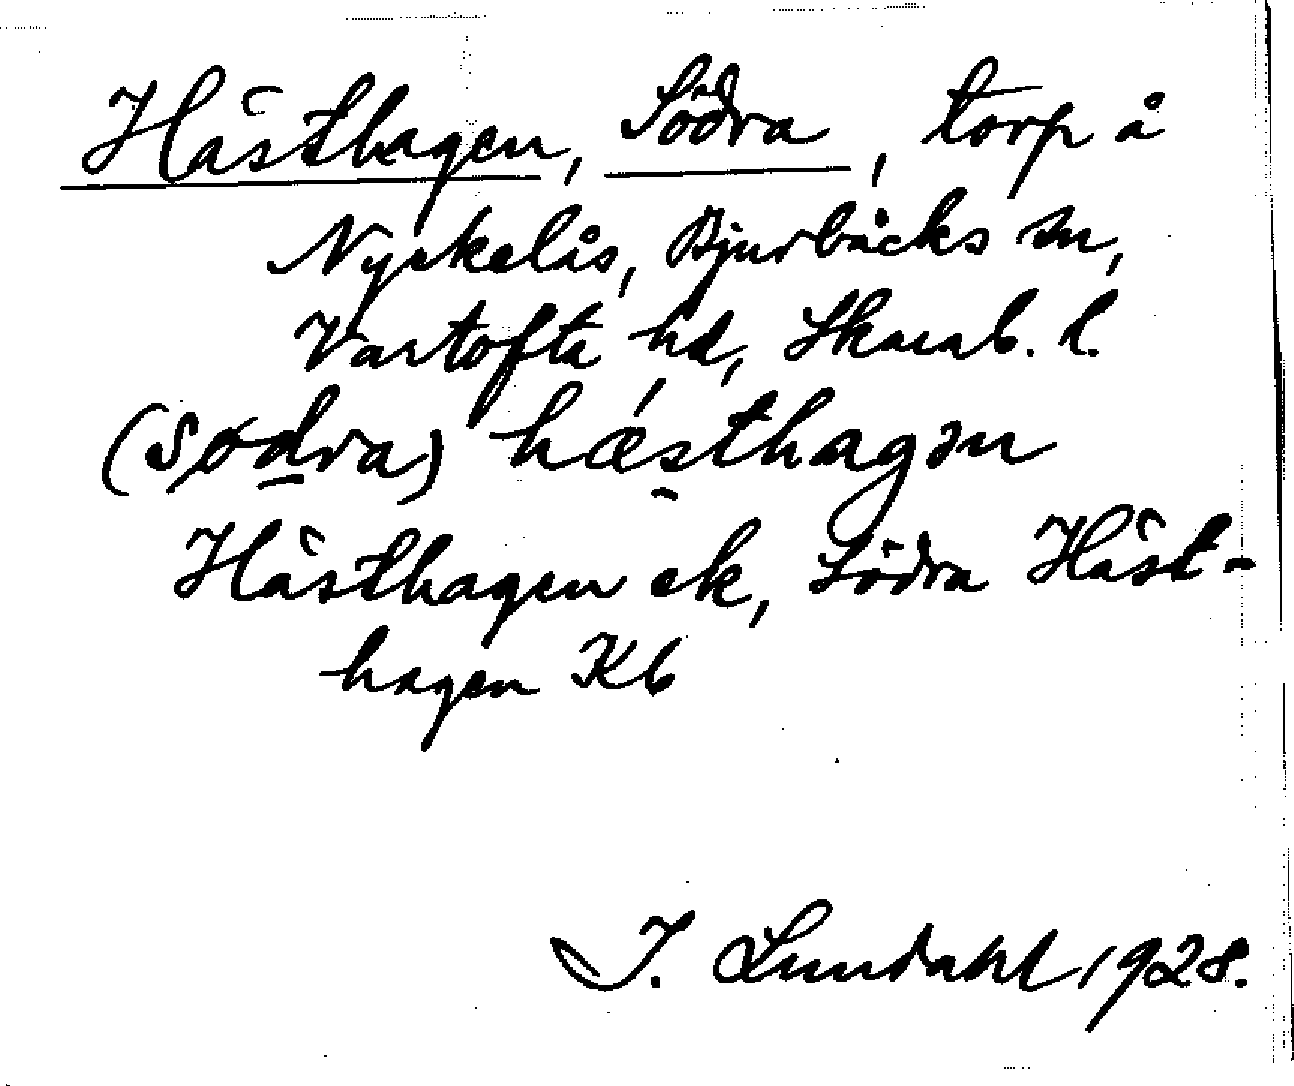 Hästhagen, Södra, torp å
Nyckelås, Bjurbäcks sn,
Vartofta hd, Skarab. l.
(sødra) hǽsthagən
Hästhagen ek, Södra Häst-
hagen Kb
I. Lundahl 1928.